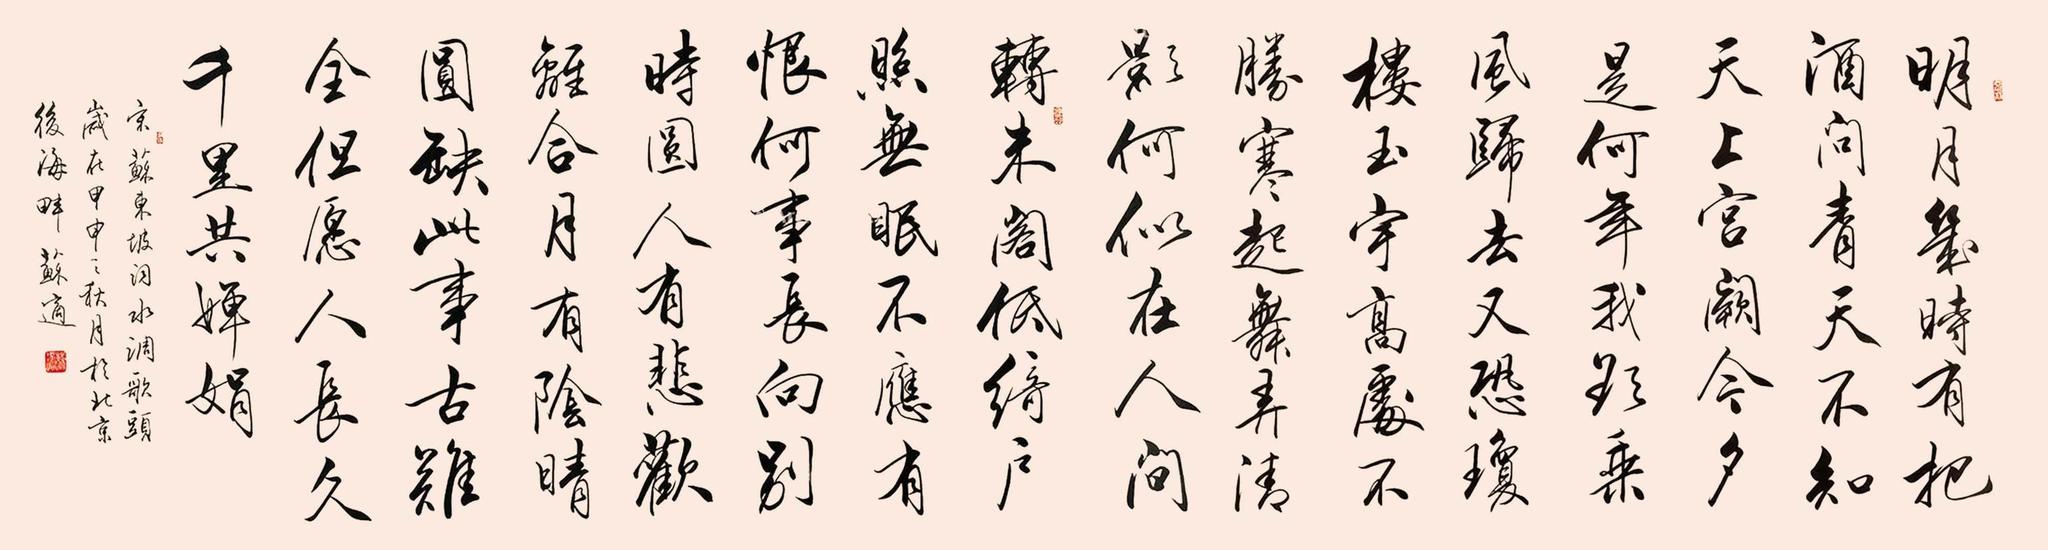 明月幾時有把
酒問青天不知
天上宮闕今夕
是何年我欲乘
風歸去又恐瓊
樓玉宇高處不
勝寒起舞弄清
影何似在人間
轉朱閣低綺戶
照無眠不應有
恨何事長向別
時圓人有悲歡
離合月有陰晴
圓缺此事古難
全但愿人長久
千里共嬋娟
宋蘇東坡詞水調歌頭
歲在甲申之秋月於北京
後海畔蘇適